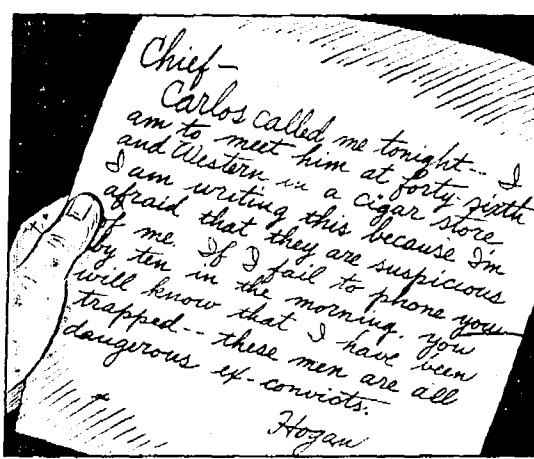 Chief-
Carlos called me tonight-- I
am to meet him at forty-sixth
and Western in a cigar store.
I am writing this because I'm
afraid that they are suspicious
of me. If I fail to phone you
by ten in the morning, you
will know that I have been
trapped-- these men are all
dangerous ex-convicts.
Hogan